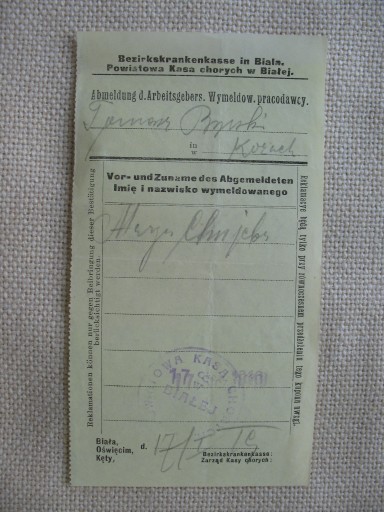 Bezirkskrankenkasse in Biała.
Powiatowa Kasa chorych w Białej.
Abmeldung d. Arbeitsgebers. Wymeldow. pracodawcy.
Tomasz
in
w Kozach
Vor- und Zuname des Abgemeldeten
Imię i nazwisko wymeldowanego
Reklamationen können nur gegen Beibringung dieser Bestätigung
berücksichtigt werden.
Reklamacye będą tylko przy równoczesnem przedłożeniu tego kuponu uwzgl.
KASA
BIAŁEJ
Biała,
Oświęcim,
Kęty,
d. 17/
Bezirkskrankenkasse:
Zarząd Kasy chorych: